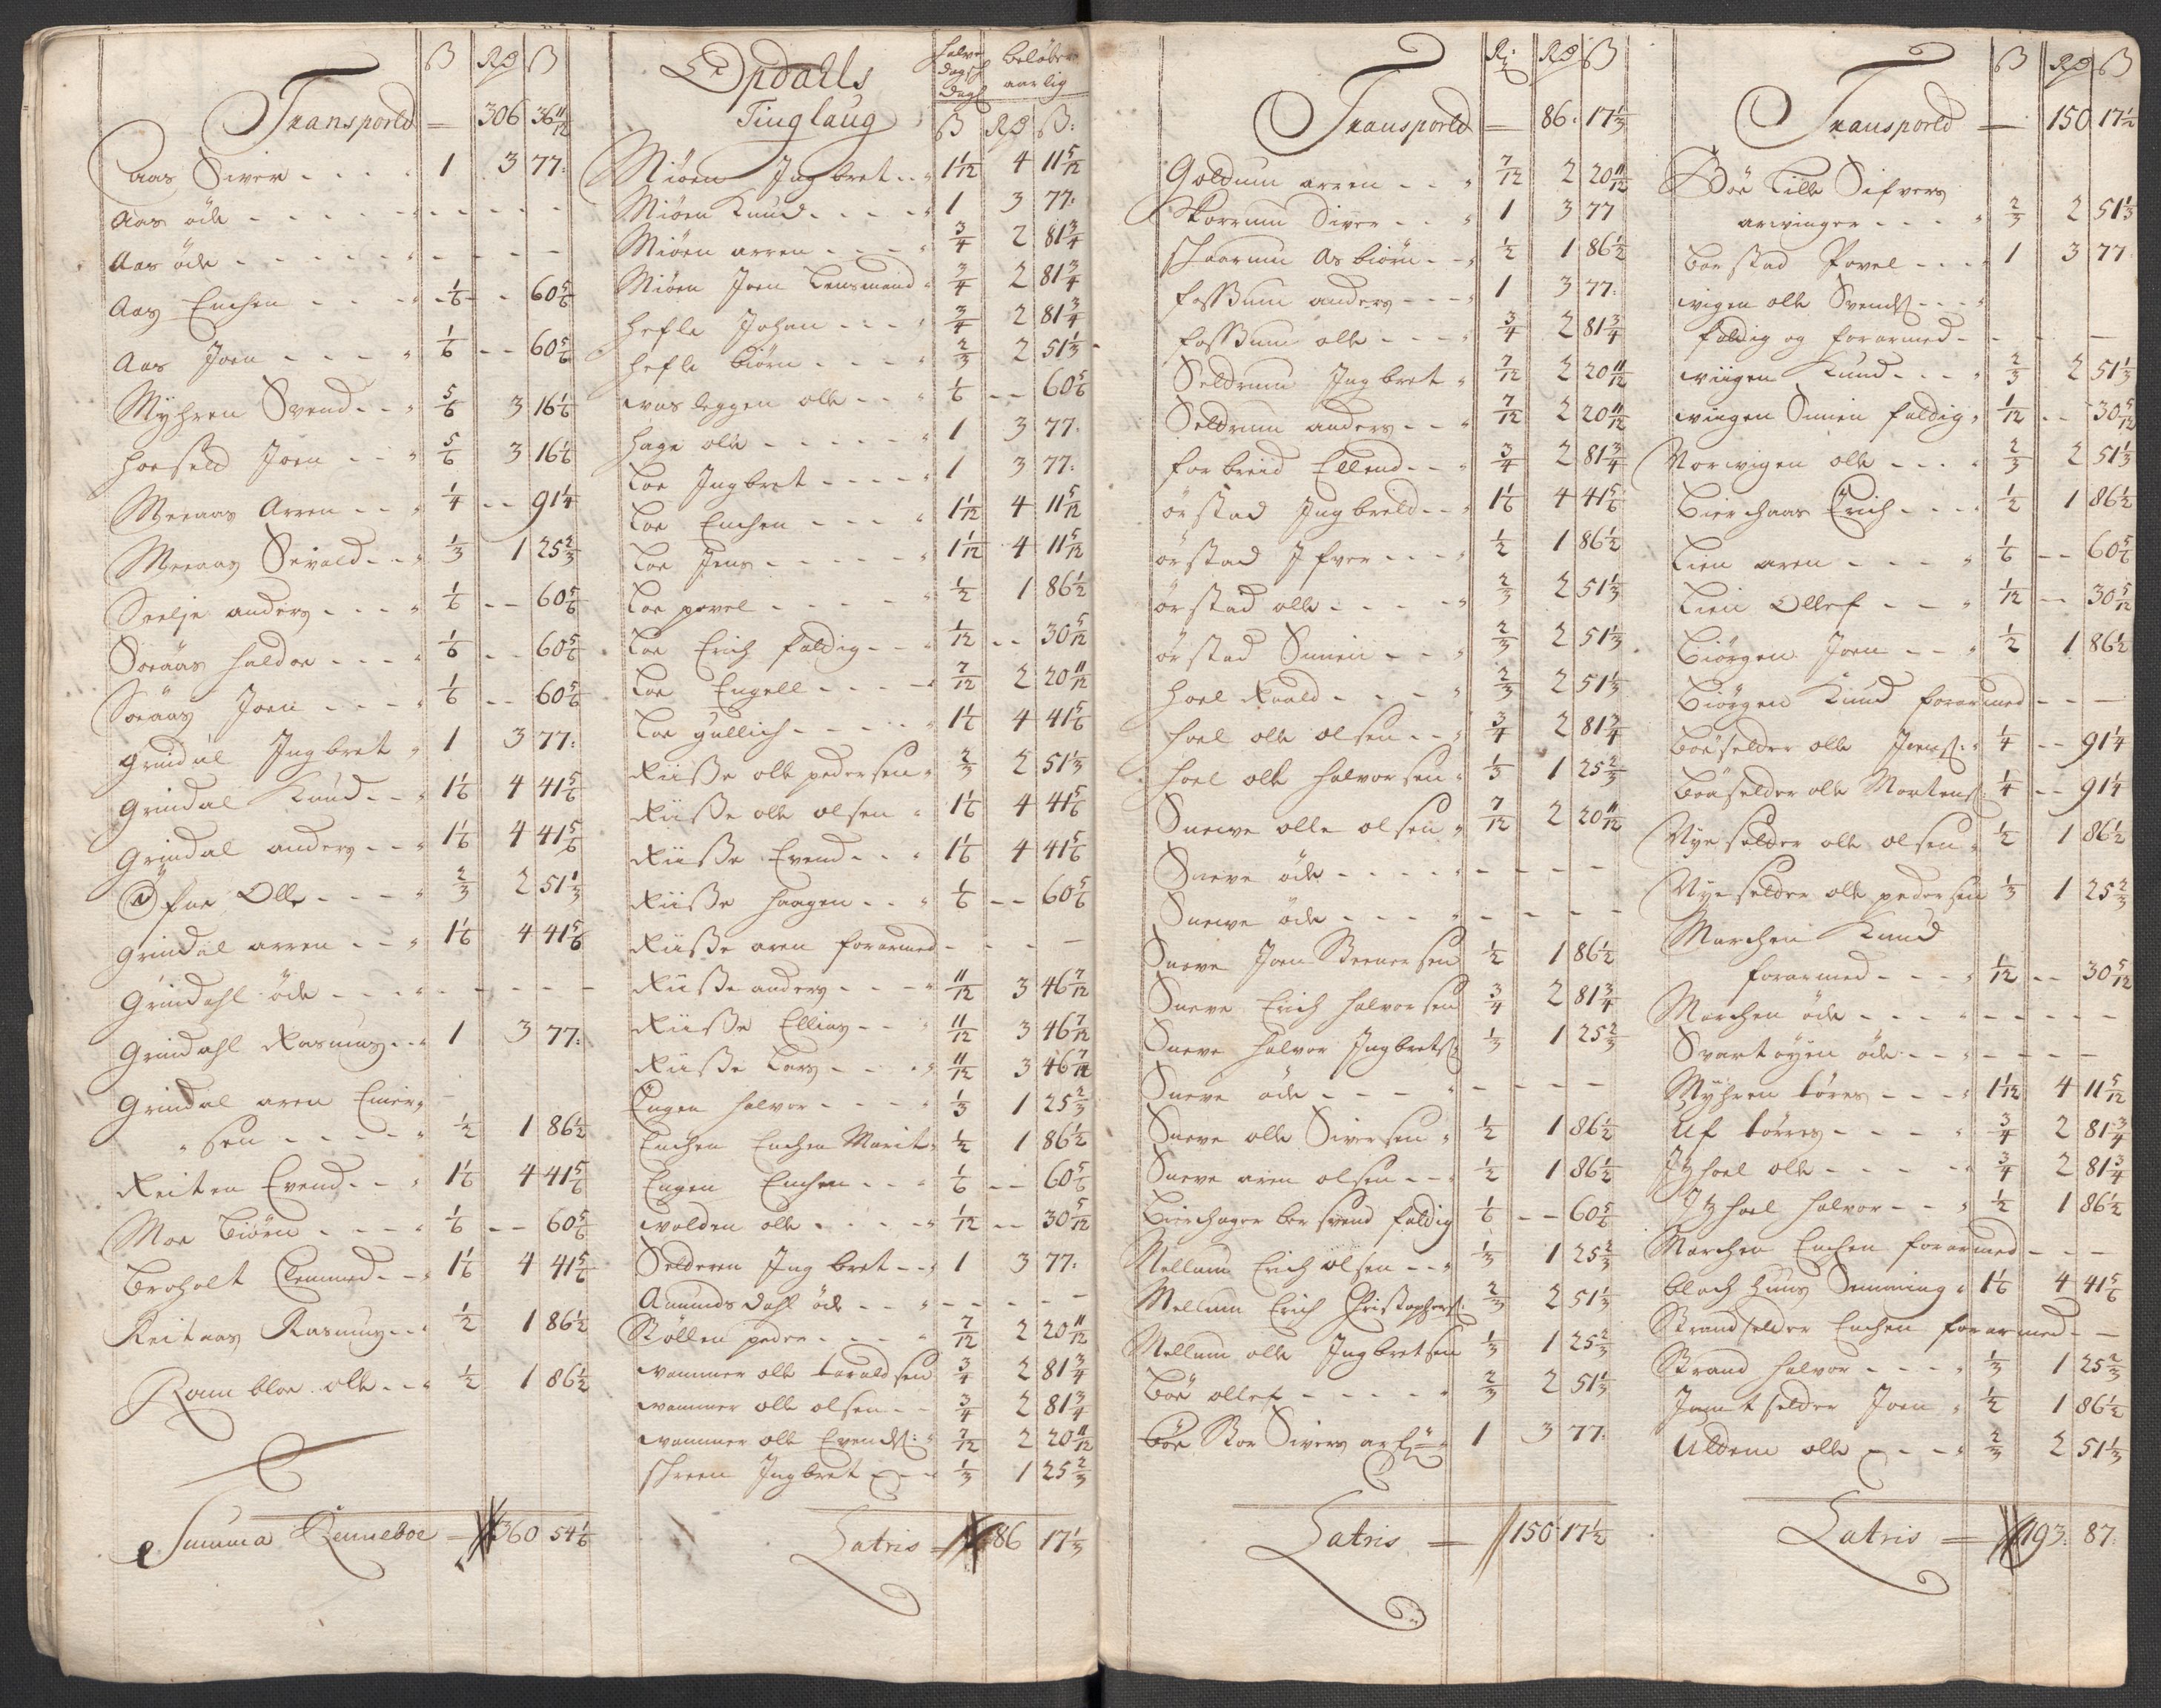 ß Rd ß
Transporld = 306 36 11/12
Aas Siver - - - - 1 3 77:
Aas öde - - - - -
Aas öde - - - - -
Aas Enchen - - - 1/6 - - 60 5/6
Aas Joen - - - 1/6 - - 60 5/6
Myhren Svend - - 5/6 3 16 1/6
Hoeseld Joen - - 5/6 3 16 1/6
Meraas Arren - - 1/4 - - 91 1/4
Meraas Sivold - - 1/3 1 25 2/3
Seelje anders - - - 1/6 - - 60 5/6
Soeaas Haldoe - - - 1/6 - - 60 5/6
Soeaas Joen - - - 1/6 - - 60 5/6
Grindal Ingbret 1 3 77:
Grindal Knud - - 1 1/6 4 41 5/6
Grindal anders - - 1 1/6 4 41 5/6
Öfne Olle - - - 2/3 2 51 1/3
Grindal arren - - 1 1/6 4 41 5/6
Grindahl öde - - - - - -
Grindahl Rasmus - - 1 3 77:
Grindal aren Einer-
sen - - - - 1/2 1 86 1/2
Reiten Evend - - 1 1/6 4 41 5/6
Moe Biörn - - - 1/6 - - 60 5/6
Broholt Clemmed - - 1 1/6 4 41 5/6
Reitaas Rasmus - - 1/2 1 86 1/2
Rambloe olle - - 1/2 1 86 1/2
Summa Renneboe = 360 54 1/6
Opdalls
Tinglaug
halve
dags
beløber
aarlig
ß Rd ß:
Miöen Ingbret - - 1 1/12 4 11 5/12
Miöen Knud - - - - 1 3 77:
Miöen arren - - - - 3/4 2 81 3/4
Miöen Joen Lensmand 3/4 2 81 3/4
Hefle Johan - - - 3/4 2 81 3/4
Hefle Biörn - - - - 2/3 2 51 1/3
wasleggen olle - - 1/6 - - 60 5/6
Hage olle - - - - - 1 3 77:
Loe Ingbret - - - - 1 3 77:
Loe Enchen - - - 1 1/12 4 11 5/12
Loe Jens - - - - 1 1/12 4 11 5/12
Loe povel - - - - 1/2 1 86 1/2
Loe Erich faldig - - 1/12 - - 30 5/12
Loe Engell - - - - 7/12 2 20 11/12
Loe gullich - - - - 1 1/6 4 41 5/6
Riisse olle pedersen 2/3 2 51 1/3
Riisse olle olsen 1 1/6 4 41 5/6
Riisse Evend - - 1 1/6 4 41 5/6
Riisse Haagen - - 1/6 - - 60 5/6
Riisse aren forarmed - - - -
Riisse anders - - - 11/12 3 46 7/12
Riisse Ellias - - - 11/12 3 46 7/12
Riisse Lars - - - 11/12 3 46 7/12
Engen halvor - - - 1/3 1 25 2/3
Enchen Enchen Marit 1/2 1 86 1/2
Engen Enchen - - - 1/6 - - 60 5/6
wolden olle - - - - 1/12 - - 30 5/12
Selderen Ingbret - - 1 3 77:
Aamunds dahl öde - - - - - - -
Stöllen peder - - - 7/12 2 20 11/12
wammer olle taraldsen 3/4 2 81 3/4
wammer olle olsen - - 3/4 2 81 3/4
wammer olle Evends: 7/12 2 20 11/12
schreen Ingbret - - 1/3 1 25 2/3
Latris = 86 17 1/3
Rd ß
Transporld = 86: 17 1/3
Goldum arren - - 7/12 2 20 11/12
Skorrum Siver - - 1 3 77
Skaarum Asbiörn - - 1/2 1 86 1/2
fossum anders - - - 1 3 77:
fossum olle - - - 3/4 2 81 3/4
Seldrum Ingbret 7/12 2 20 11/12
Seldrum anders - - 7/12 2 20 11/12
forbreid Ellend - - 3/4 2 81 3/4
örstad Ingbreld - - 1 1/6 4 41 5/6
örstad Ifver - - - 1/2 1 86 1/2
örstad olle - - - - 2/3 2 51 1/3
örstad Simen - - 2/3 2 51 1/3
Hoel Roald - - - 2/3 2 51 1/3
Hoel olle olsen - - 3/4 2 81 3/4
Hoel olle halvorsen 1/3 1 25 2/3
Snewe olle olsen 7/12 2 20 11/12
Sneve öde - - - - - - - -
Snewe öde - - - - - - -
Sneve Joen Steenersen 1/2 1 86 1/2
Sneve Erich halvorsen 3/4 2 81 3/4
Sneve halvor Ingbrets: 1/3 1 25 2/3
Sneve öde - - - - - - -
Sneve olle Siversen 1/2 1 86 1/2
Sneve aren olsen - - 1/2 1 86 1/2
Bierchager ber svend faldig 1/6 - - 60 5/6
Mellum Erich olsen - - 1/3 1 25 2/3
Mellum Erich Christophers: 2/3 2 51 1/3
Mellum olle Ingbretsen 1/3 1 25 2/3
Böe ollef - - - - - 2/3 2 51 1/3
Böe Stor Sivers arf: 1 3 77:
Latris = 150 17 1/2
ß Rd ß
Transporld = 150 17 1/2
Böe Lille Sifvers
arvinger - - - 2/3 2 51 1/3
Boestad Povel - - - 1 3 77
wigen olle Svends: - - -
faldig og forarmed - - - -
wiigen Knud - - - 2/3 2 51 1/3
wiigen Simen faldig 1/12 - - 30 5/12
Norwigen olle - - - 2/3 2 51 1/3
Bierchaas Erich - - - 1/2 1 86 1/2
Lien aren - - - 1/6 - - 60 5/6
Lien Ollef - - 1/12 - - 30 5/12
Biörgen Joen - - 1/2 1 86 1/2
Biörgen Knud forarmed - - -
Böeselder olle Jens: 1/4 - - 91 1/4
Böeselder olle Mortens: 1/4 - - 91 1/4
Nyeselder olle olsen 1/2 1 86 1/2
Nyeselder olle pedersen 1/3 1 25 2/3
Marchen Knud
forarmed - - - 1/12 - - 30 5/12
Marchen öde - - - - - - -
Svartøyen öde - - - - - -
Myhren tøres - - - 1 1/12 4 11 5/12
Uf tørres - - - - 3/4 2 81 3/4
Izhoel olle - - - - 3/4 2 81 3/4
Izhoel halvor - - 1/2 1 86 1/2
Marchen Enchen forarmed - - -
bloch Huus Semming 1 1/6 4 41 5/6
Strandselder Enchen forarmed - -
Strand halvor - - - 1/3 1 25 2/3
Jamtselder Joen 1/2 1 86 1/2
Uldem olle - - - 2/3 2 51 1/3
Latris = 193: 87: